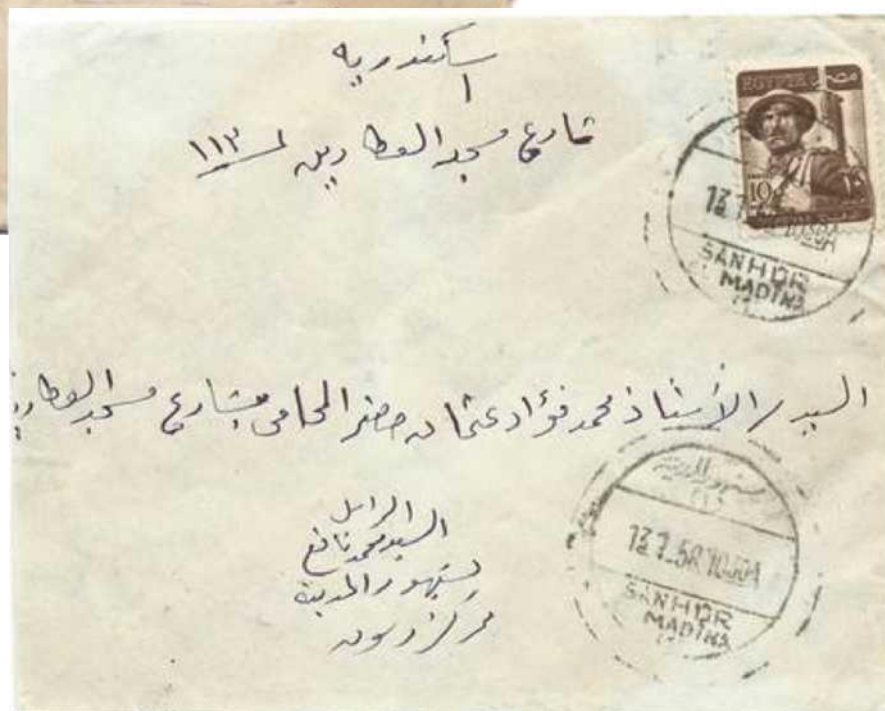 اسكندرية
شارع مسجد العطارين ١١٣
EGYPTE مصر
10
SANHUR
EL MADINA
السيد / الأستاذ محمد فؤاد عثمان خضر المحامى بشارع مسجد العطارين
سنهور المدينة
13 7.58 1030A
SANHUR
MADINA
الراسل
السيد محمد نافع
بسنهور المدينة
مركز دسوق